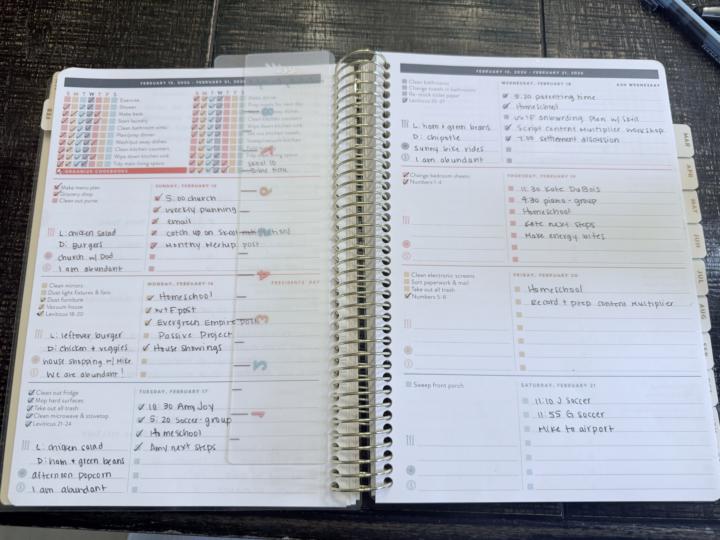 FEBRUARY 15, 2026 - FEBRUARY 21, 2026
S M T W T F S
Exercise
Shower
Make beds
Start laundry
Clean bathroom sinks
Plan/prep dinner
Wash/put away dishes
Clean kitchen counters
Wipe down kitchen sink
Tidy main living space
ORGANIZE COOKBOOKS
Make menu plan
Grocery shop
Clean out purse
L: chicken salad
D: Burgers
church w/ Dad
I am abundant
SUNDAY, FEBRUARY 15
5:00 church
weekly planning
email
catch up on Skool
Monthly Meetup post
Clean mirrors
Dust light fixtures & fans
Dust furniture
Vacuum house
Leviticus 18-20
L: leftover burger
D: chicken + veggies
house shopping w/ Mike
We are abundant!
MONDAY, FEBRUARY 16
PRESIDENTS' DAY
Homeschool
WTF post
Evergreen Empire Dash
Passive Project
House showings
Clean out fridge
Mop hard surfaces
Take out all trash
Clean microwave & stovetop
Leviticus 21-24
L: chicken salad
D: ham + green beans
afternoon popcorn
I am abundant
TUESDAY, FEBRUARY 17
10:30 Amy Joy
5:20 Soccer-group
Homeschool
Amy next steps
FEBRUARY 15, 2026 - FEBRUARY 21, 2026
Clean bathrooms
Change towels in bathrooms
Re-stock toilet paper
Leviticus 25-27
L: ham + green beans
D: chipotle
Sunny bike rides
I am abundant
WEDNESDAY, FEBRUARY 18
ASH WEDNESDAY
5:30 parenting time
Homeschool
WTF onboarding plan w/ Said
Script Content Multiplier workshop
7:00 settlement discussion
Change bedroom sheets
Numbers 1-4
THURSDAY, FEBRUARY 19
11:30 Kate DuBois
4:30 piano-group
Homeschool
Kate next steps
Make energy bites
Clean electronic screens
Sort paperwork & mail
Take out all trash
Numbers 5-8
FRIDAY, FEBRUARY 20
Homeschool
Record + prep Content Multiplier
Sweep front porch
SATURDAY, FEBRUARY 21
11:10 J Soccer
11:55 G Soccer
Mike to airport
MAR
APR
MAY
JUN
JUL
AUG